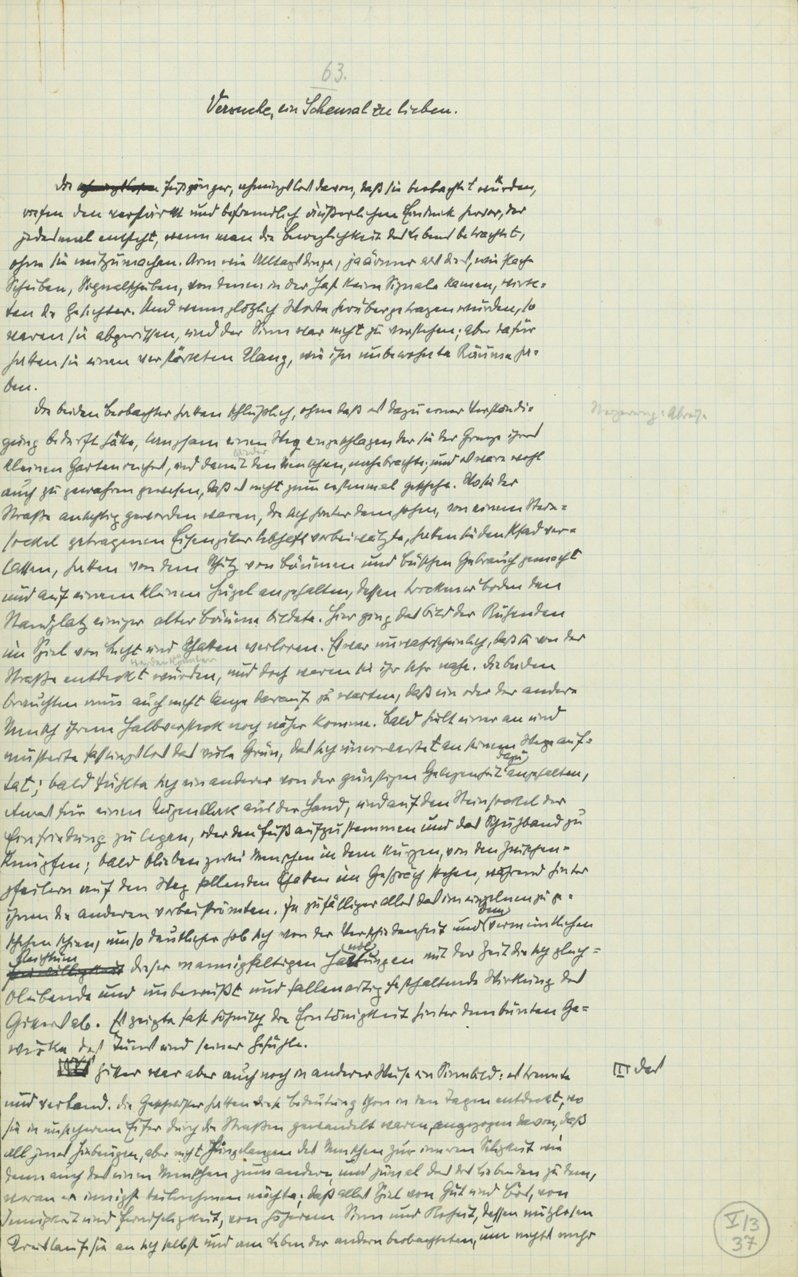 63.
Versuche, ein Scheusal zu lieben.
Die Fußgänger, ahnungslos davon, daß sie beobachtet würden,
riefen den verstärkt und befremdlich äußerlichen Eindruck hervor, der
jedesmal entsteht, wenn man die Beweglichkeit des Lebens betrachtet,
ohne sie mitzumachen. Arm wie Alltagsdinge, ja ärmer als das, wie flache
Scheiben, Signalscheiben, von denen in der Tat keine Signale kamen, wirk-
ten die Gesichter. Und wenn plötzlich Worte herübergetragen wurden, so
waren sie abgerissen, und der Sinn war nicht zu verstehen; aber dafür
hatten sie einen verstärkten Klang, wie ihn unbewohnte Räume ha-
ben.
Die beiden Beobachter hatten schließlich, ohne daß es dazu einer Verständi-
gung bedurft hätte, langsam einen Weg eingeschlagen der sie der Grenze ihres
kleinen Gartenreiches, und damit den Menschen, näherbrachte; und es wäre wohl
auch zu gewahren gewesen, daß es nicht zum erstenmal geschehe. Als sie der
Straße ansichtig geworden waren, die sich hinter dem hohen, von einem Stein-
sockel getragenen Eisengitter lebhaft vorbeiwälzte, hatten sie den Pfad ver-
lassen, hatten von dem Schutz von Bäumen und Büschen Gebrauch gemacht
und auf einem kleinen Hügel angehalten, dessen trockener Boden den
Standplatz einiger alter Bäume bildete. Hier ging das Bild der Ruhenden
im Spiel von Licht und Schatten verloren. Es war unwahrscheinlich, daß sie von der
Straße entdeckt würden, und doch waren sie ihr sehr nahe. Die beiden
brauchten nun auch nicht lange darauf zu warten, daß ein oder der andere
Mensch ihrem Halbversteck noch näher komme. Bald hielt einer an und
musterte das viele Grün, das sich unerwartet an seinem Wege auf-
tat; bald fühlte sich ein anderer von der günstigen Gelegenheit dazu angehalten,
etwas für einen Augenblick aus der Hand, und auf den Steinsockel der
Einfriedung zu legen, oder den Fuß aufzustemmen und das Schuhband zu
knüpfen; bald blieben zwei Menschen in dem kurzen, von den Zwischen-
pfeilern auf den Weg fallenden Schatten im Gespräch stehen, während hinter
ihnen die anderen vorbeiströmten. Je zufälliger alles das im einzelnen zu ge-
schehen schien, umso deutlicher hob sich von der Verschiedenheit und dem vermeintlichen
dieser mannigfaltigen mit der Zeit die sich gleich-
bleibende und unbewußt und fallenartig festhaltende Wirkung des
Gitters ab. Es zeigte fast höhnisch die Eintönigkeit hinter dem bunten Ge-
wirke des Tuns und seiner Gefühle.
III Das
Gitter war aber auch noch in anderer Weise ein Sinnbild: es trennte
und verband. Die Geschwister hatten diese Bedeutung schon in den Tagen entdeckt, wo
sie in unsicherem Eifer durch die Straßen gewandelt waren, angezogen davon, daß
all jenes Hinlangen, aber nicht Hingelangen des Menschen zur inneren Seligkeit wie
denn auch das eines Menschen zum andern, und zumal das des Liebenden zu dem,
woran er innigst teilnehmen möchte; daß alles Spiel von Gut und Bös, von
Innigkeit und Feindseligkeit, von höherem Sinn und Roheit, dessen nutzlosen
Kreislauf sie an sich selbst und am Leben der andern beobachteten, um nichts mehr
V/3
37